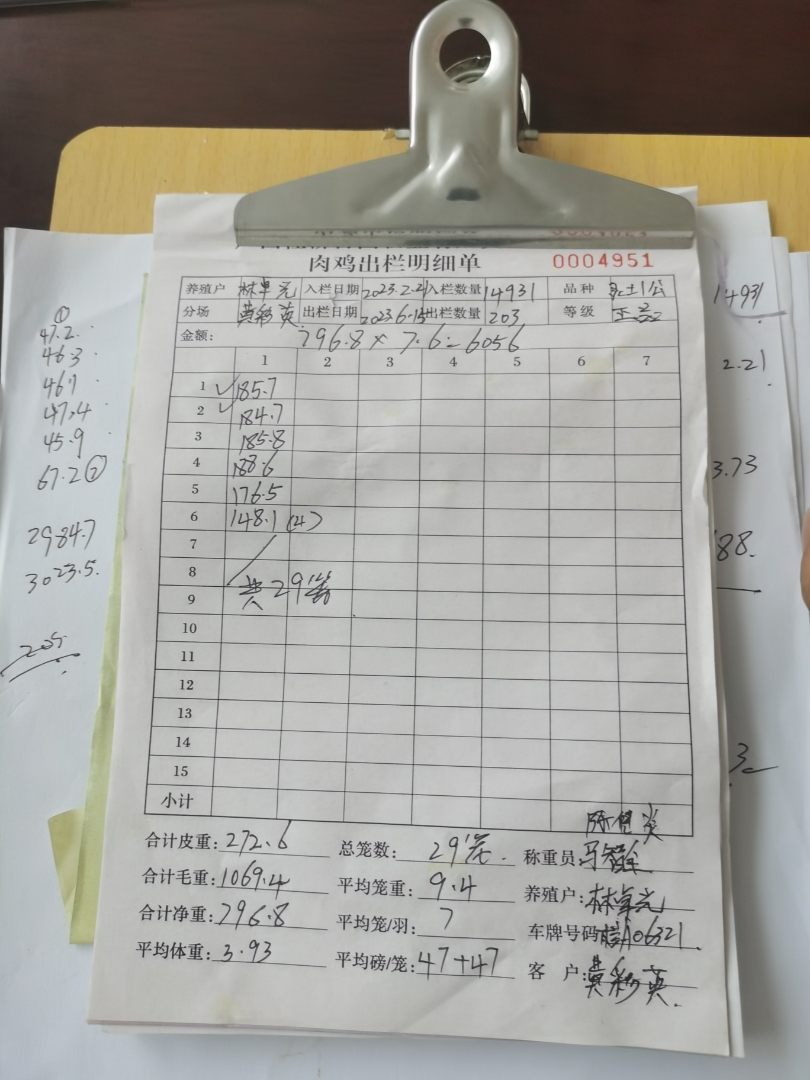 肉鸡出栏明细单 0004951
养殖户 林卓光 入栏日期 2023.2.21 入栏数量 14931 品种 土1公
分场 黄秒英 出栏日期 2023.6.15 出栏数量 203 等级 正
金额: 796.8 × 7.6 = 6056
1 2 3 4 5 6 7
1 185.7
2 184.7
3 185.8
4 188.6
5 176.5
6 148.1 (4)
7
8
9 共29笼
10
11
12
13
14
15
小计
合计皮重: 272.6 总笼数: 29笼. 称重员:
合计毛重: 1069.4 平均笼重: 9.4 养殖户: 林卓光
合计净重: 796.8 平均笼/羽: 7 车牌号码 A06321
平均体重: 3.93 平均磅/笼: 47+47 客 户: 黄秒英.
①
47.2
46.3
46.1
47.4
45.9
67.2 ②
2984.7
3023.5.
205.
14931
2.21
3.73
88.
3